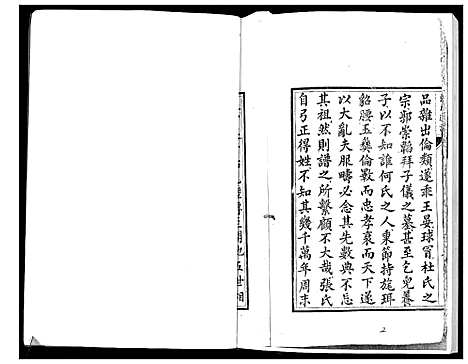 品雜出倫類遂乖王晏球冒杜氏之
宗郭崇韜拜子儀之墓甚至乞兒養
子以不知誰何氏之人秉節持旄珥
貂腰玉彝倫斁而忠孝衰而天下遂
以大亂夫服疇必念其先數典不忘
其祖然則譜之所繫顧不大哉張氏
自弓正得姓不知其幾千萬年周末
2
五世相